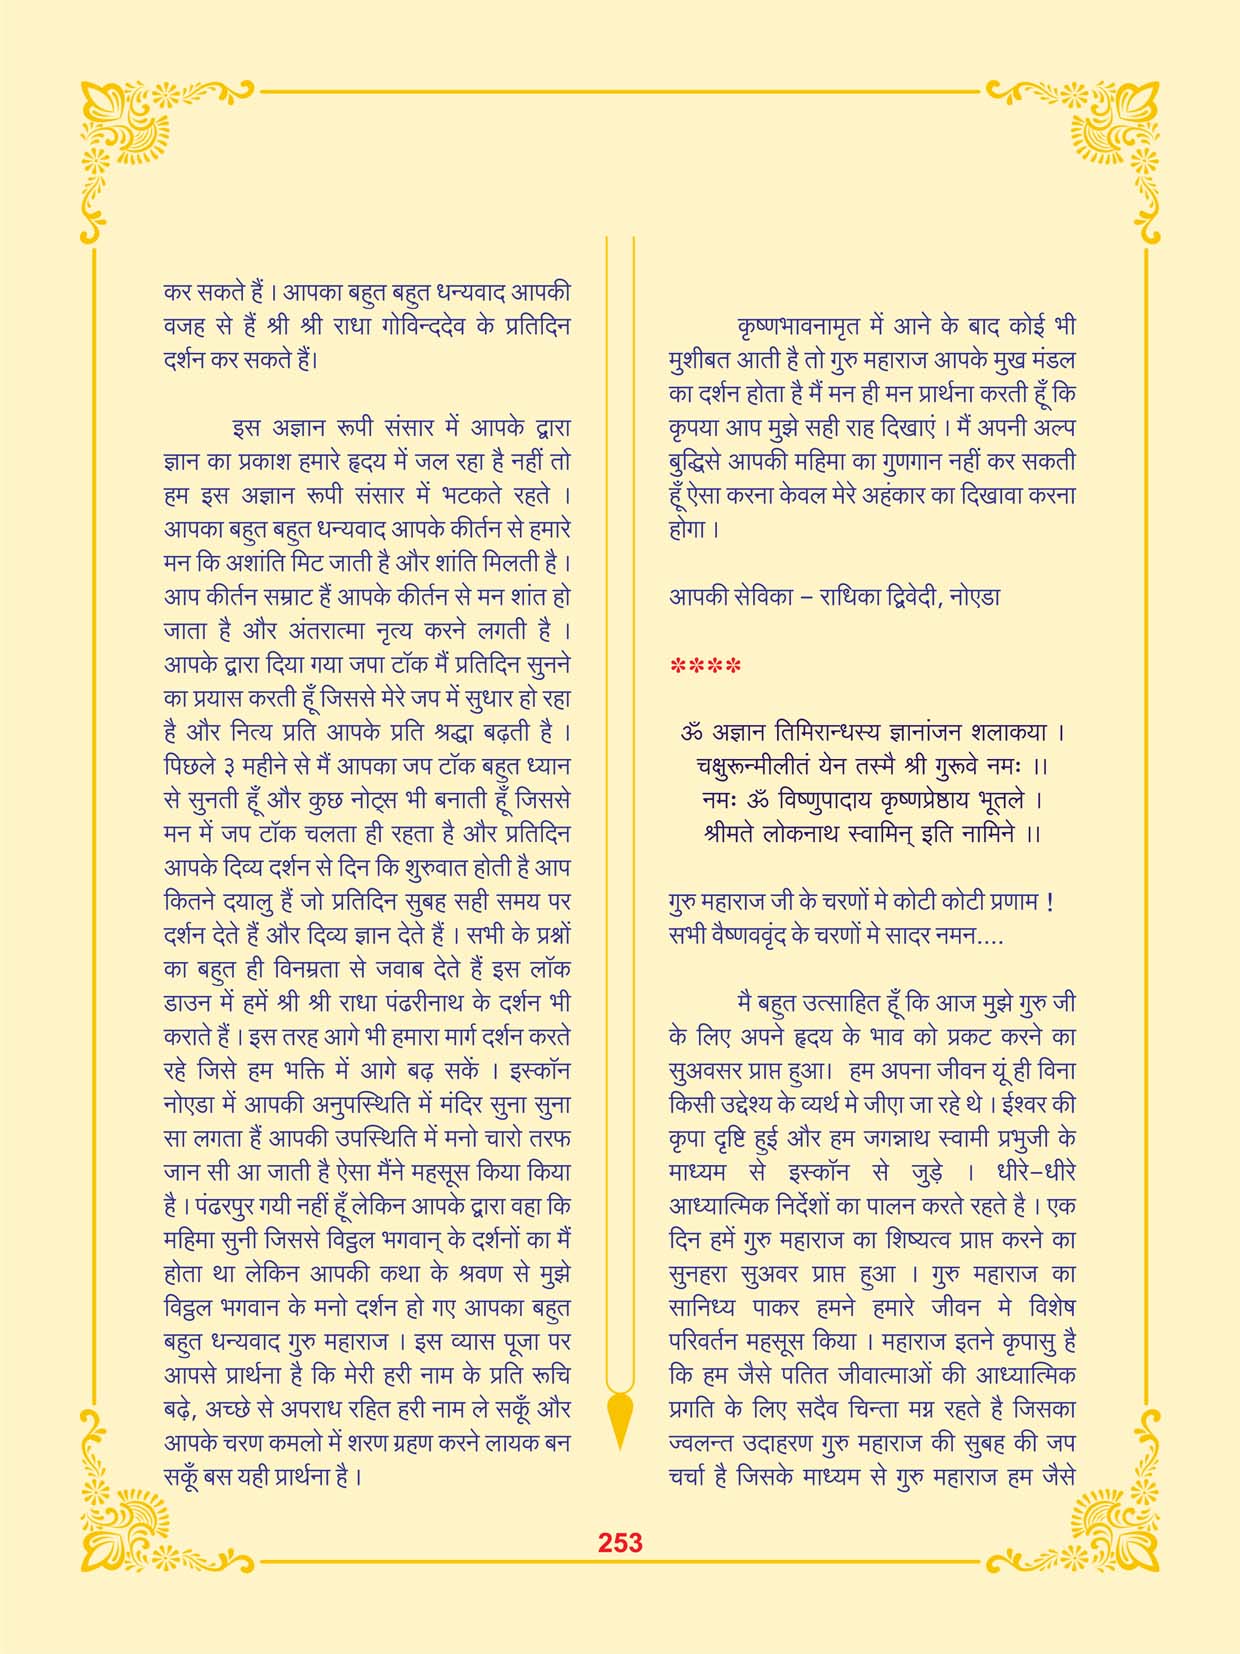 कर सकते हैं । आपका बहुत बहुत धन्यवाद आपकी
वजह से हैं श्री श्री राधा गोविन्ददेव के प्रतिदिन
दर्शन कर सकते हैं।
इस अज्ञान रूपी संसार में आपके द्वारा
ज्ञान का प्रकाश हमारे हृदय में जल रहा है नहीं तो
हम इस अज्ञान रूपी संसार में भटकते रहते ।
आपका बहुत बहुत धन्यवाद आपके कीर्तन से हमारे
मन कि अशांति मिट जाती है और शांति मिलती है ।
आप कीर्तन सम्राट हैं आपके कीर्तन से मन शांत हो
जाता है और अंतरात्मा नृत्य करने लगती है ।
आपके द्वारा दिया गया जपा टॉक मैं प्रतिदिन सुनने
का प्रयास करती हूँ जिससे मेरे जप में सुधार हो रहा
है और नित्य प्रति आपके प्रति श्रद्धा बढ़ती है ।
पिछले ३ महीने से मैं आपका जप टॉक बहुत ध्यान
से सुनती हूँ और कुछ नोट्स भी बनाती हूँ जिससे
मन में जप टॉक चलता ही रहता है और प्रतिदिन
आपके दिव्य दर्शन से दिन कि शुरुवात होती है आप
कितने दयालु हैं जो प्रतिदिन सुबह सही समय पर
दर्शन देते हैं और दिव्य ज्ञान देते हैं । सभी के प्रश्नों
का बहुत ही विनम्रता से जवाब देते हैं इस लॉक
डाउन में हमें श्री श्री राधा पंढरीनाथ के दर्शन भी
कराते हैं । इस तरह आगे भी हमारा मार्ग दर्शन करते
रहे जिसे हम भक्ति में आगे बढ़ सकें । इस्कॉन
नोएडा में आपकी अनुपस्थिति में मंदिर सुना सुना
सा लगता हैं आपकी उपस्थिति में मनो चारो तरफ
जान सी आ जाती है ऐसा मैंने महसूस किया किया
है । पंढरपुर गयी नहीं हूँ लेकिन आपके द्वारा वहा कि
महिमा सुनी जिससे विट्ठल भगवान् के दर्शनों का मैं
होता था लेकिन आपकी कथा के श्रवण से मुझे
विट्ठल भगवान के मनो दर्शन हो गए आपका बहुत
बहुत धन्यवाद गुरु महाराज । इस व्यास पूजा पर
आपसे प्रार्थना है कि मेरी हरी नाम के प्रति रूचि
बढ़े, अच्छे से अपराध रहित हरी नाम ले सकूँ और
आपके चरण कमलो में शरण ग्रहण करने लायक बन
सकूँ बस यही प्रार्थना है ।
कृष्णभावनामृत में आने के बाद कोई भी
मुशीबत आती है तो गुरु महाराज आपके मुख मंडल
का दर्शन होता है मैं मन ही मन प्रार्थना करती हूँ कि
कृपया आप मुझे सही राह दिखाएं । मैं अपनी अल्प
बुद्धिसे आपकी महिमा का गुणगान नहीं कर सकती
हूँ ऐसा करना केवल मेरे अहंकार का दिखावा करना
होगा ।
आपकी सेविका – राधिका द्विवेदी, नोएडा
****
ॐ अज्ञान तिमिरान्धस्य ज्ञानांजन शलाकया ।
चक्षुरून्मीलीतं येन तस्मै श्री गुरूवे नमः ।।
नमः ॐ विष्णुपादाय कृष्णप्रेष्ठाय भूतले ।
श्रीमते लोकनाथ स्वामिन् इति नामिने ।।
गुरु महाराज जी के चरणों मे कोटी कोटी प्रणाम !
सभी वैष्णववृंद के चरणों मे सादर नमन....
मै बहुत उत्साहित हूँ कि आज मुझे गुरु जी
के लिए अपने हृदय के भाव को प्रकट करने का
सुअवसर प्राप्त हुआ। हम अपना जीवन यूं ही विना
किसी उद्देश्य के व्यर्थ मे जीए जा रहे थे । ईश्वर की
कृपा दृष्टि हुई और हम जगन्नाथ स्वामी प्रभुजी के
माध्यम से इस्कॉन से जुड़े । धीरे-धीरे
आध्यात्मिक निर्देशों का पालन करते रहते है । एक
दिन हमें गुरु महाराज का शिष्यत्व प्राप्त करने का
सुनहरा सुअवर प्राप्त हुआ । गुरु महाराज का
सानिध्य पाकर हमने हमारे जीवन मे विशेष
परिवर्तन महसूस किया । महाराज इतने कृपासु है
कि हम जैसे पतित जीवात्माओं की आध्यात्मिक
प्रगति के लिए सदैव चिन्ता मग्न रहते है जिसका
ज्वलन्त उदाहरण गुरु महाराज की सुबह की जप
चर्चा है जिसके माध्यम से गुरु महाराज हम जैसे
253